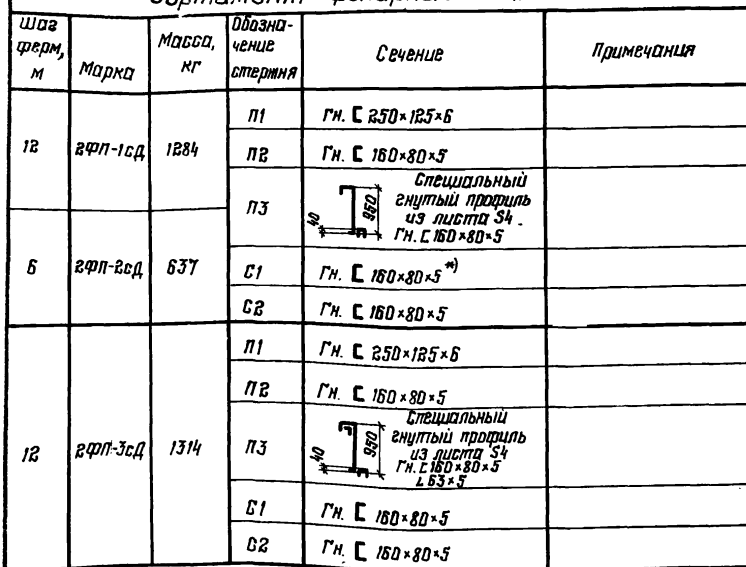 Шаг ферм, м
Марка
Масса, кг
Обозна-
чение
стержня
Сечение
Примечания
12 2ФП-1сД 1284
П1 Гн. [ 250×125×6
П2 Гн. [ 160×80×5
П3 40 950 Специальный
гнутый профиль
из листа S4.
Гн. [ 160×80×5
6 2ФП-2сД 637
С1 Гн. [ 160×80×5 *)
С2 Гн. [ 160×80×5
12 2ФП-3сД 1314
П1 Гн. [ 250×125×6
П2 Гн. [ 160×80×5
П3 40 950 Специальный
гнутый профиль
из листа S4
Гн. [ 160×80×5
L 63×5
С1 Гн. [ 160×80×5
С2 Гн. [ 160×80×5